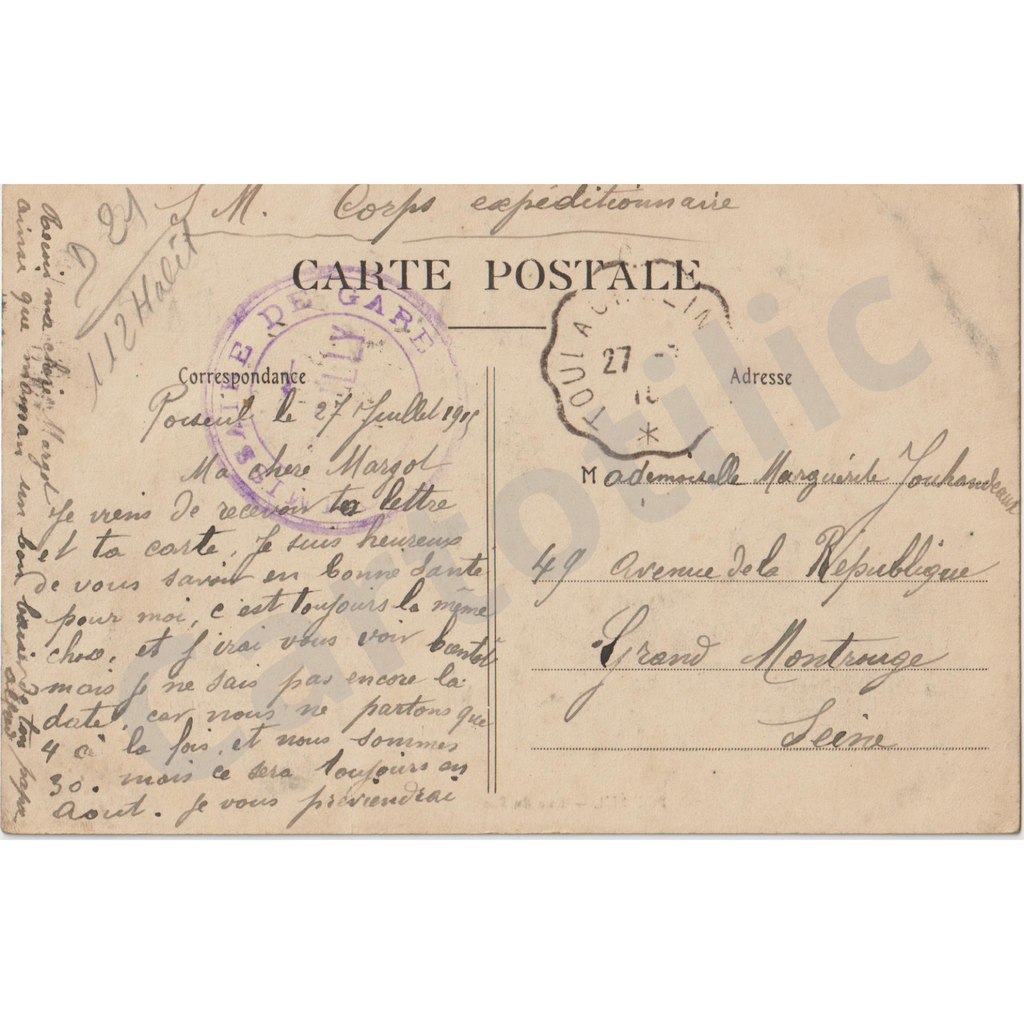 S M. Corps expéditionnaire
D 21
112 Halët
CARTE POSTALE
Correspondance
Adresse
DE GARE
LLY
TOUL A
27
*
Poiseul le 27 Juillet 1915
Ma chere Margot
Je viens de recevoir ta lettre
et ta carte, Je suis heureux
de vous savoir en bonne Sante
pour moi, c'est toujours la même
chose, et j'irai vous voir bientot
mais je ne sais pas encore la
date, car nous ne partons que
4 à la fois, et nous sommes
30. mais ce sera toujours en
Aout. je vous previendrai
ma chère Margot
ainsi que maman un bon baiser de ton papa
alfred
Mademoiselle Marguerite Jouhandeaux
49 avenue de la République
Grand Montrouge
Seine
Cartolic